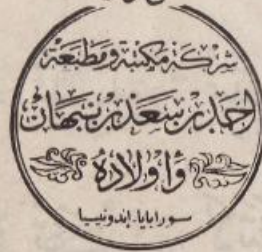 شركة مكتبة ومطبعة
احمد بن سعد بن نبهان
واولاده
سورابايا-إندونيسيا